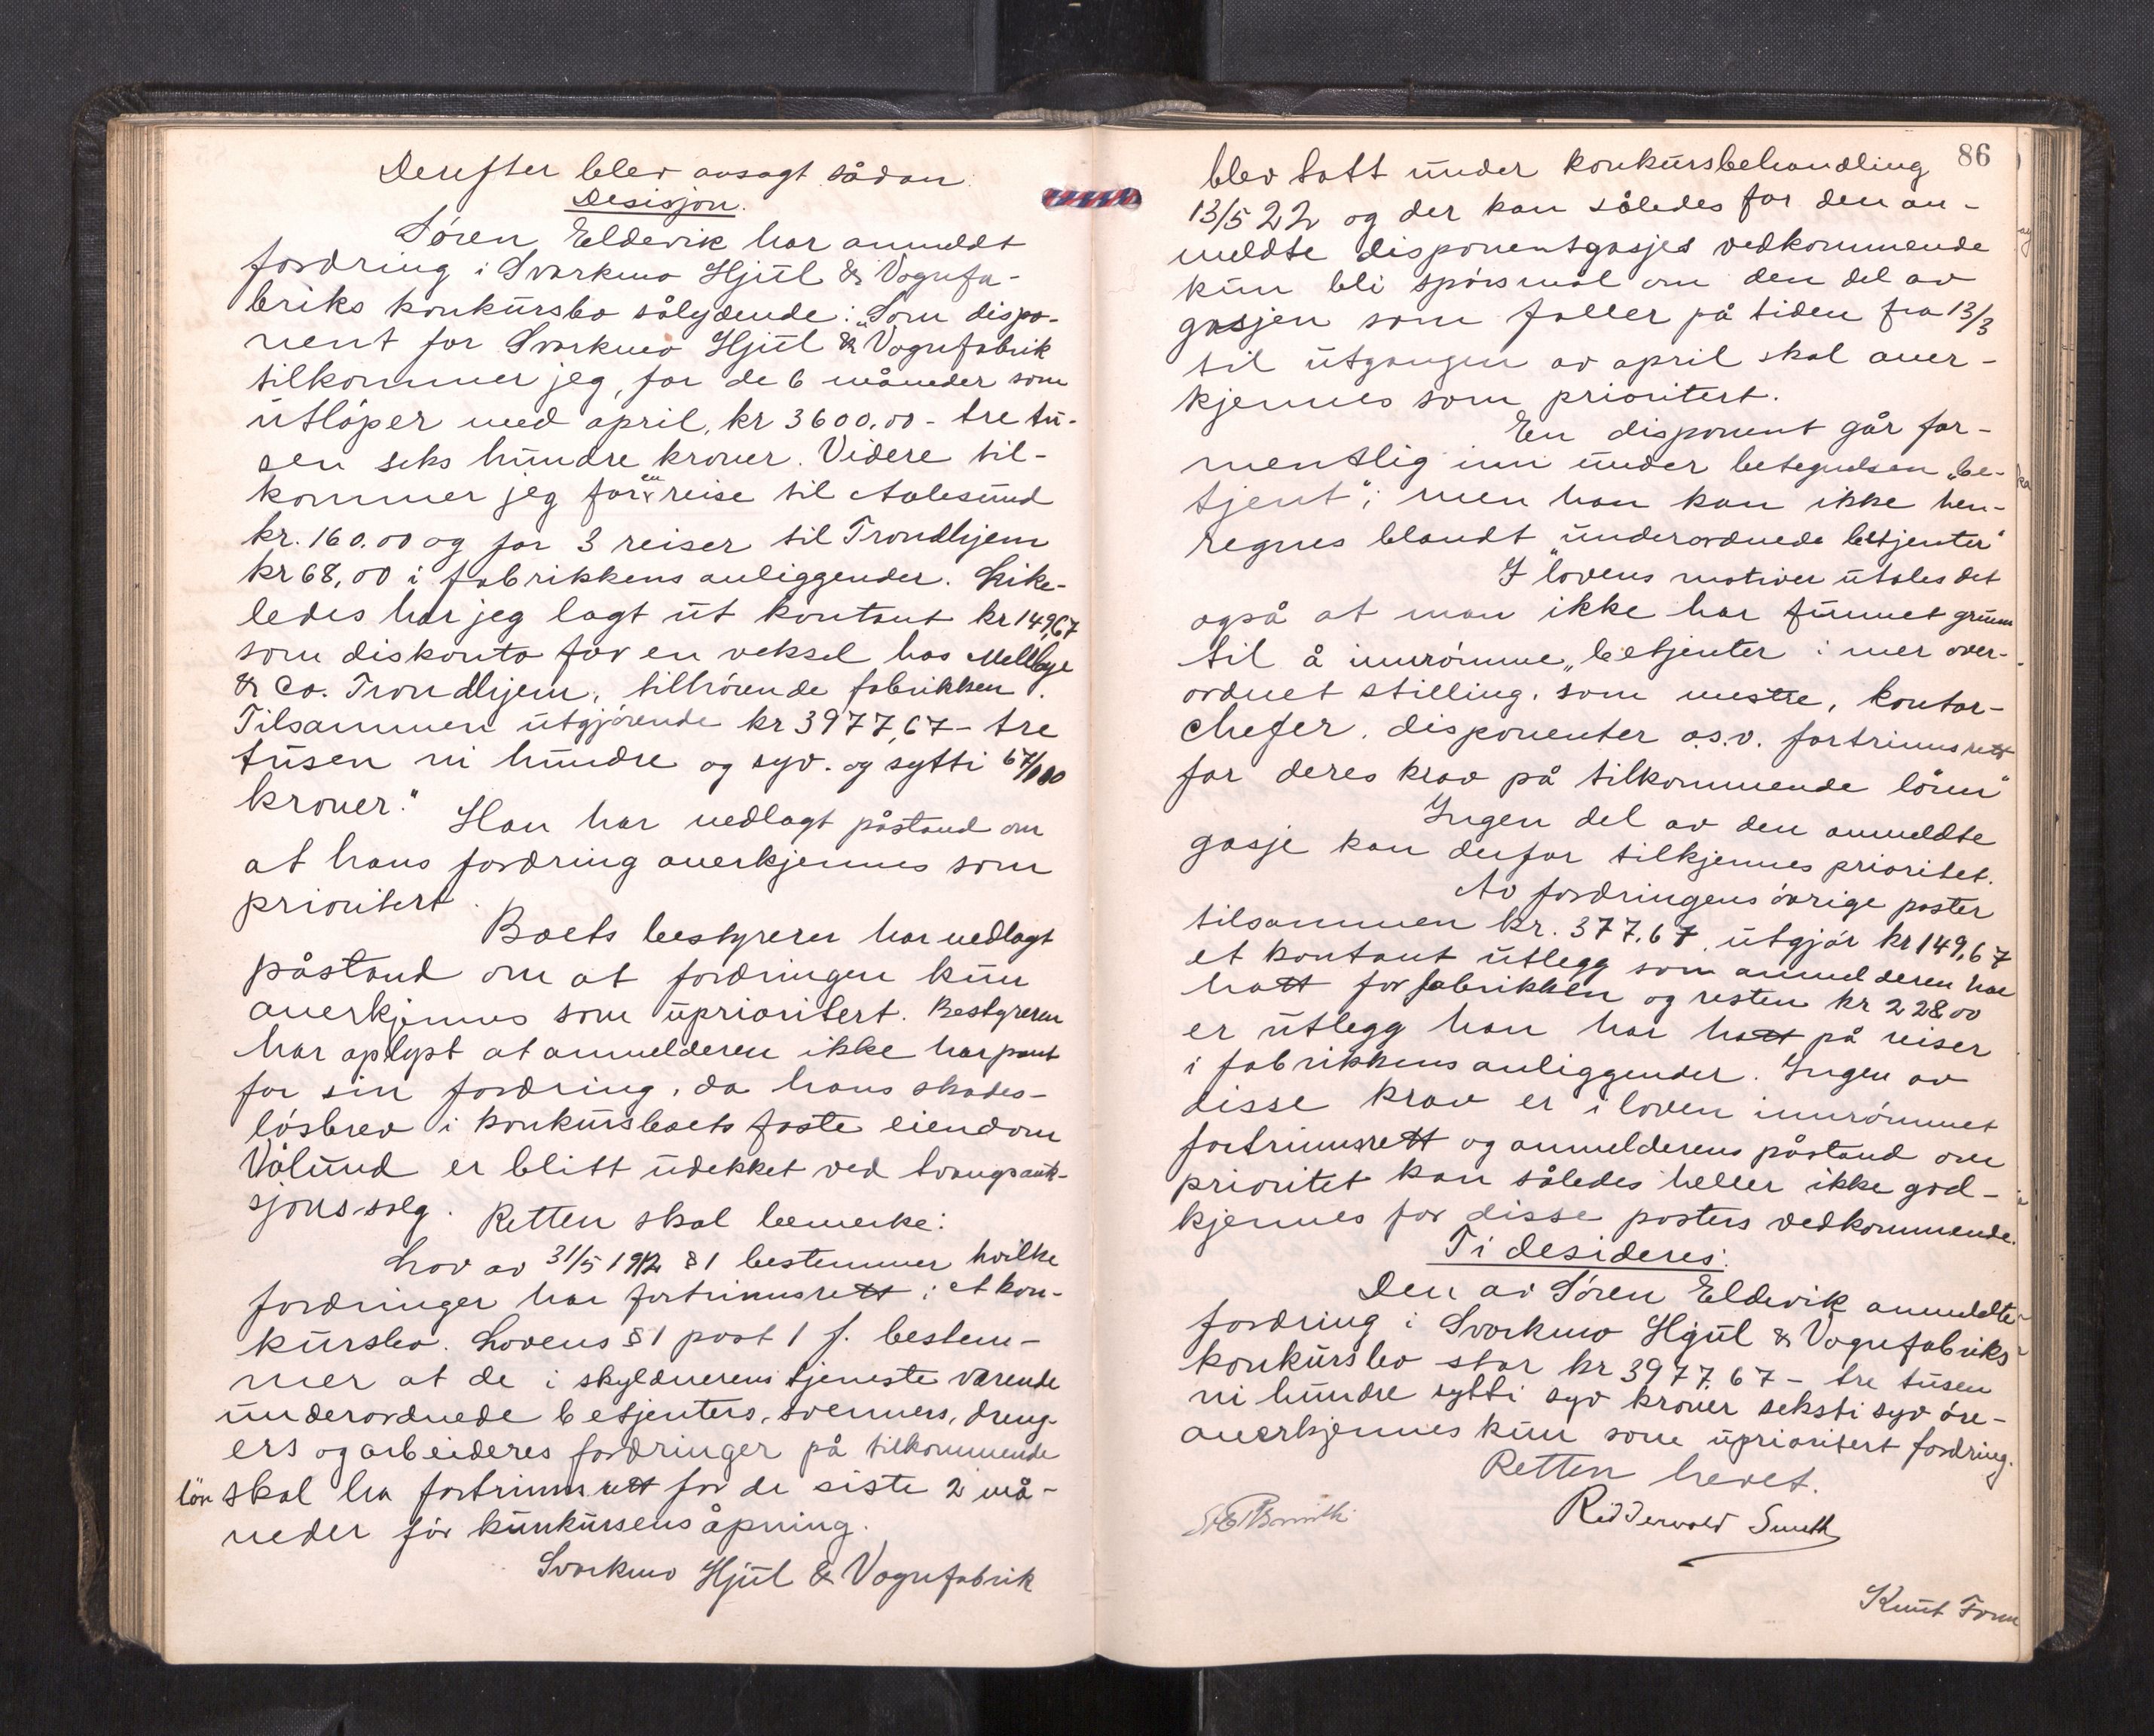 Derefter blev avsagt sådan
Desisjon.
Sören Eldevik har anmeldt
fordring i Svorkmo Hjul & Vognfa-
briks konkursbo sålydende: "Som dispo-
nent for Svorkmo Hjul & Vognfabrik
tilkommer jeg, for de 6 måneder som
utlöper med april, kr 3600.00 - tre tu-
sen seks hundre kroner. Videre til-
kommer jeg for en reise til Aalesund
kr. 160.00 og for 3 reiser til Trondhjem
kr 68,00 i fabrikkens anliggender. Like-
ledes har jeg lagt ut kontant kr 149,67
som diskonto for en veksel hos Mellbye
& Co. Trondhjem, tilhörende fabrikken.
Tilsammen utgjörende kr 3977,67 - tre
tusen ni hundre og syv- og sytti 67/100
kroner."
Han har nedlagt påstand om
at hans fordring anerkjennes som
prioritert.
Boets bestyrer har nedlagt
påstand om at fordringen kun
anerkjennes som uprioritert. Bestyreren
har oplyst at anmelderen ikke har pant
for sin fordring, da hans skades-
lösbrev i konkursboets faste eiendom
Vålund er blitt udekket ved tvangsauk-
sjonssalg. Retten skal bemerke:
Lov av 31/5 1912 § 1 bestemmer hvilke
fordringer har fortrinnsrett i et kon-
kursbo. Lovens § 1 post 1 f. bestem-
mer at de i skyldnerens tjeneste værende
underordnede betjenters, svenners, dreng-
ers og arbeideres fordringer på tilkommende
lön skal ha fortrinnsrett for de siste 2 må-
neder för kunkursens åpning.
Svorkmo Hjul & Vognfabrik
86
blev tatt under konkursbehandling
13/5 22 og der kan således for den an-
meldte disponentgasjes vedkommende
kun bli spörsmål om den del av
gasjen som faller på tiden fra 13/3
til utgangen av april skal aner-
kjennes som prioritert.
En disponent går for-
mentlig inn under betegnelsen "be-
tjent"; men han kan ikke hen-
regnes blandt "underordnede betjenter"
I lovens motiver utales det
også at man ikke har funnet grunn
til å innrömme "betjenter i mer over-
ordnet stilling, som mestre, kontor-
chefer, disponenter o.s.v. fortrinnsrett
for deres krav på tilkommende lönn"
Ingen del av den anmeldte
gasje kan derfor tilkjennes prioritet.
Av fordringens övrige poster
tilsammen kr. 377.67, utgjör kr 149,67
et kontant utlegg som anmelderen har
hatt for fabrikken og resten kr 228.00
er utlegg han har hatt på reiser
i fabrikkens anliggender. Ingen av
disse krav er i loven innrömmet
fortrinnsrett og anmelderens påstand om
prioritet kan således heller ikke god-
kjennes for disse posters vedkommende.
Ti desideres:
Den av Sören Eldevik anmeldte
fordring i Svorkmo Hjul & Vognfabriks
konkursbo stor kr 3977.67 - tre tusen
ni hundre sytti syv kroner seksti syv öre -
anerkjennes kun som uprioritert fordring.
Retten hevet.
Ridderwold Smith
Knut